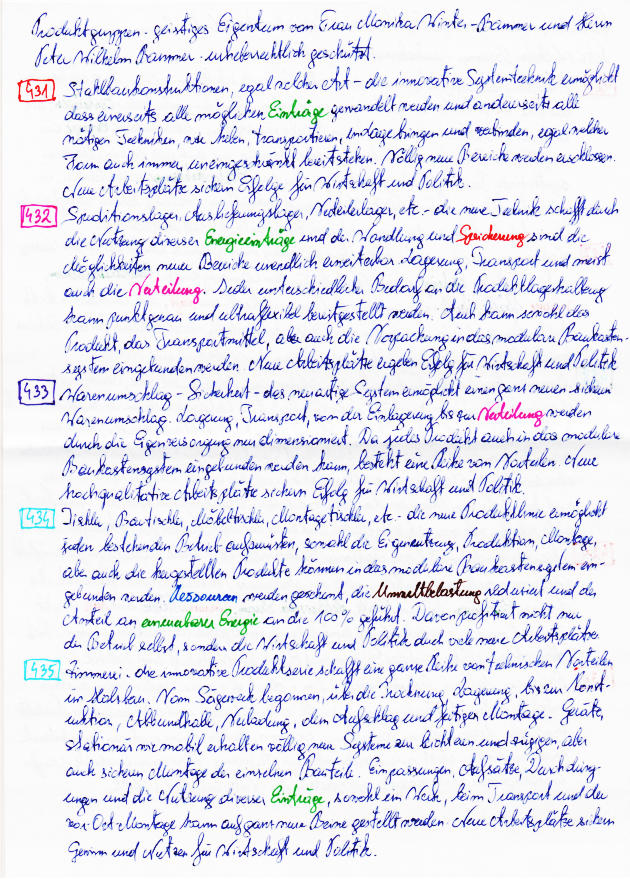 Produktgruppen - geistiges Eigentum von Frau Monika Winter-Pammer und Herrn
Peter Wilhelm Pammer - urheberrechtlich geschützt.
431 Stahlbaukonstruktionen, egal welcher Art - die innovative Systemtechnik ermöglicht
dass einerseits alle möglichen Einträge gewandelt werden und anderseits alle
nötigen Techniken, wie heben, transportieren, indagebringen und verbinden, egal welcher
Form auch immer, uneingeschränkt bereitstehen. Völlig neue Bereiche werden erschlossen.
Neue Arbeitsplätze sichern Erfolge für Wirtschaft und Politik.
432 Speditionslager, Auslieferungslager, Niederlager, etc. - die neue Technik schafft durch
die Nutzung diverser Energieeinträge und der Wandlung und Speicherung sind die
Möglichkeiten neuer Bereiche unendlich erweiterbar. Lagerung, Transport und meist
auch die Verteilung. Jeder unterschiedliche Bedarf an die Produktlagerhaltung
kann punktgenau und ultraflexibel bereitgestellt werden. Auch kann sowohl das
Produkt, das Transportmittel, aber auch die Verpackung in das modulare Baukasten-
system eingebunden werden. Neue Arbeitsplätze ergeben Erfolg für Wirtschaft und Politik
433 Warenumschlag - Sicherheit - das neuartige System ermöglicht einen ganz neuen sicheren
Warenumschlag. Lagerung, Transport, von der Einlagerung bis zur Verteilung werden
durch die Eigenversorgung neu dimensioniert. Da jedes Produkt auch in das modulare
Baukastensystem eingebunden werden kann, besteht eine Reihe von Vorteilen. Neue
hochqualitative Arbeitsplätze sichern Erfolg für Wirtschaft und Politik.
434 Tischler, Bautischler, Möbeltischler, Montagetischler, etc. - die neue Produktlinie ermöglicht
jeden bestehenden Betrieb aufzurüsten, sowohl die Eigennutzung, Produktion, Montage,
aber auch die hergestellten Produkte können in das modulare Baukastensystem ein-
gebunden werden. Ressourcen werden geschont, die Umweltbelastung reduziert und der
Anteil an erneuerbarer Energie an die 100% geführt. Davon profitiert nicht nur
der Betrieb selbst, sondern die Wirtschaft und Politik durch viele neue Arbeitsplätze
435 Zimmerei - die innovative Produktserie schafft eine ganze Reihe von technischen Vorteilen
im Holzbau. Vom Sägewerk begonnen, über die Trocknung, Lagerung, bis zur Konst-
ruktion, Abbundhalle, Verladung, dem Aufschlag und fertigen Montage. Geräte,
stationär wie mobil erhalten völlig neue Systeme zur leichteren und zügigen, aber
auch sicheren Montage der einzelnen Bauteile. Einpassungen, Aufsätze, Durchdring-
ungen und die Nutzung diverser Einträge, sowohl im Werk, beim Transport und der
vor-Ort-Montage kann auf ganz neue Beine gestellt werden. Neue Arbeitsplätze sichern
Gewinn und Nutzen für Wirtschaft und Politik.